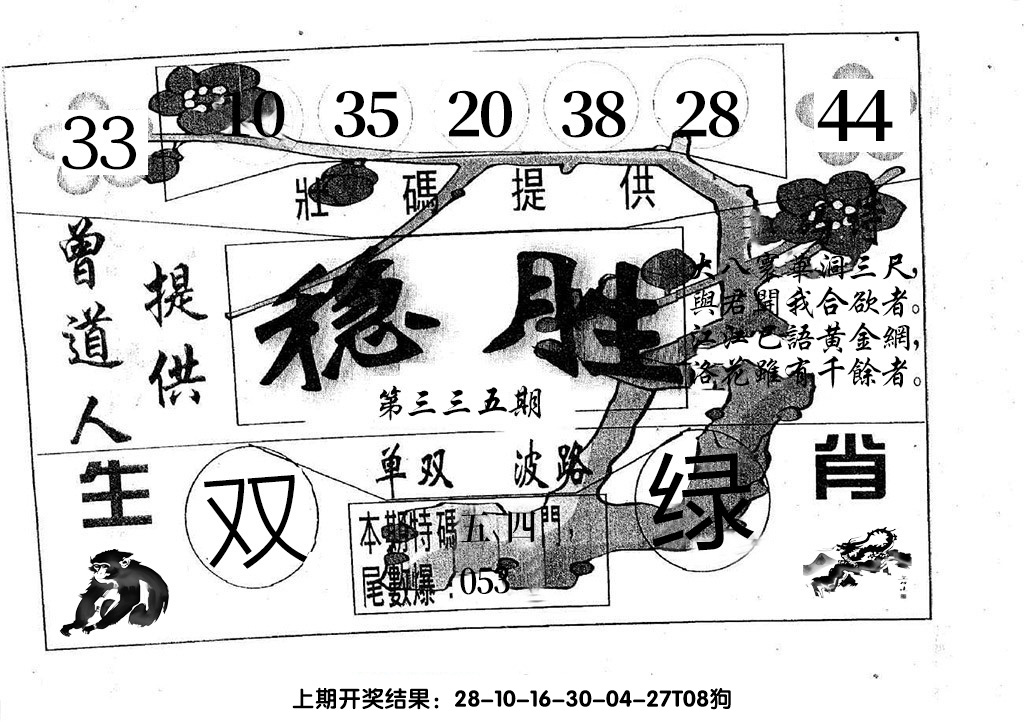 33 10 35 20 38 28 44
壯碼提供
曾道人
提供
稳胜
第三三五期
大八雲華洞三尺,
與君開我合欲者。
江江巴語黃金網,
洛花雖有千餘者。
单双 波路
生肖
双 绿
本期特碼五、四門,
尾數爆:053
上期开奖结果:28-10-16-30-04-27T08狗